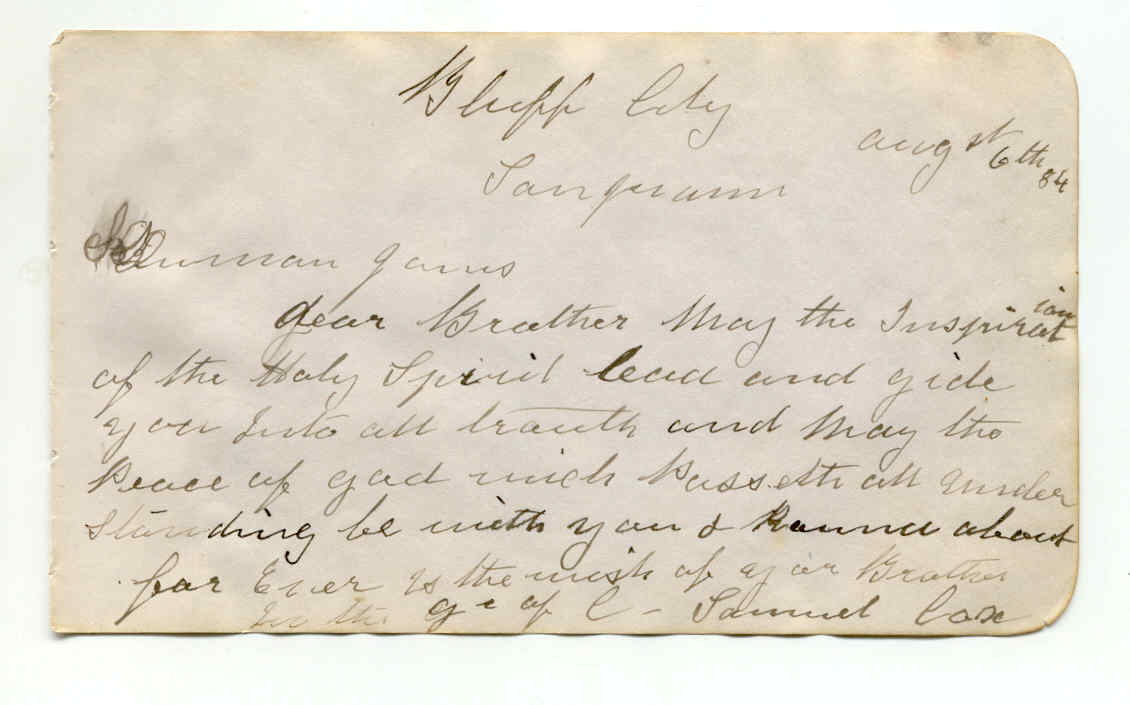 Bluff City
augst 6th 84
Sanjuann
Human Jams
dear Brother May the Inspirat ion
of the Holy Spirit lead and gide
you Into all trauth and May the
Peace of god wich Passeth all under
standing be with you & Round about
for Ever Is the wish of yor Brother
In the g e of C - Samuel Cox